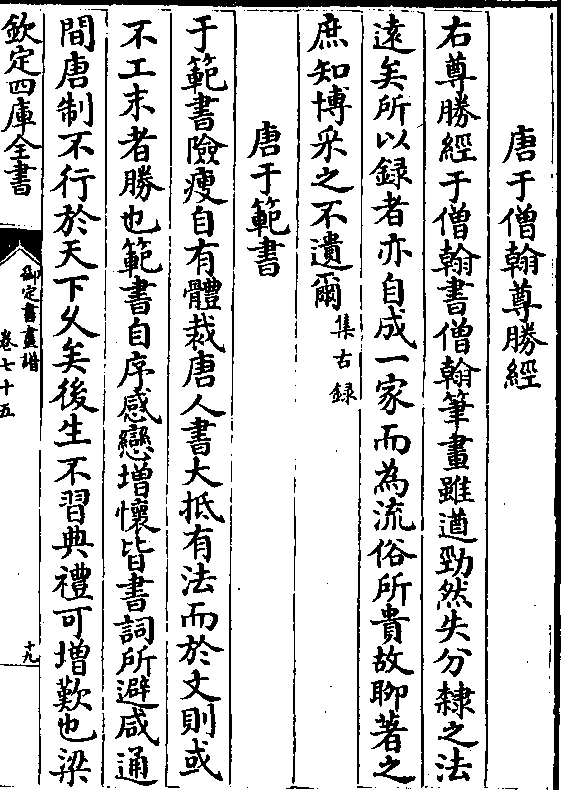 唐于僧翰尊勝經
右尊勝經于僧翰書僧翰筆畫雖遒勁然失分隸之法
遠矣所以録者亦自成一家而為流俗所貴故聊著之
庶知博采之不遺爾集古録
唐于範書
于範書險瘦自有體裁唐人書大抵有法而於文則或
不工末者勝也範書自序感戀增懷皆書詞所避咸通
間唐制不行於天下乆矣後生不習典禮可增歎也梁
欽定四庫全書
御定書畫譜
卷七十五
十九